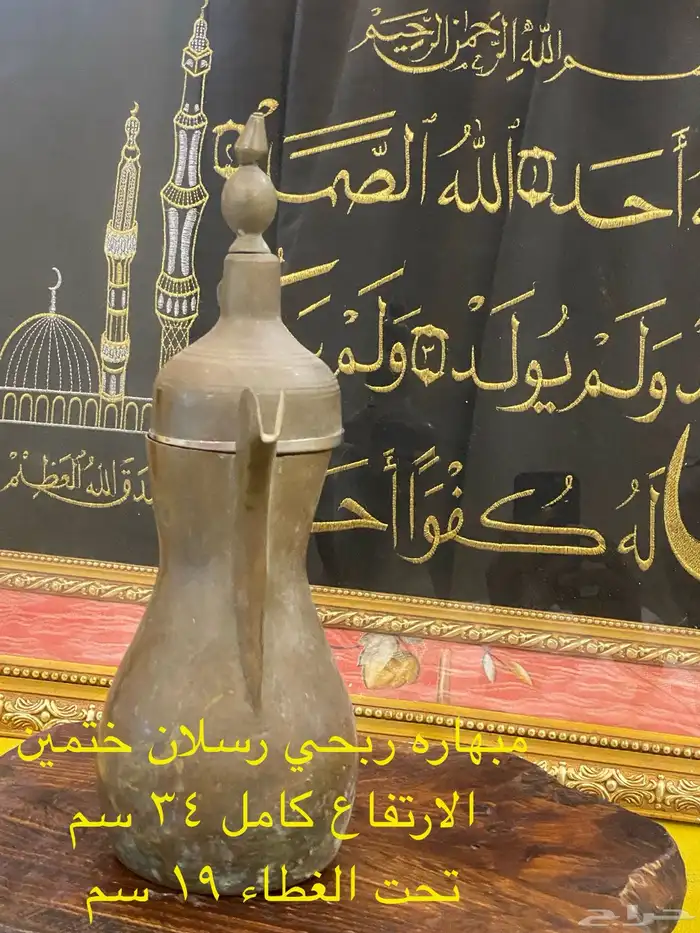 بسم الله الرحمن الرحيم
أحد ۝١ الله الصمد
ولم يولد ۝٣ ولم
له كفوًا أحد
صدق الله العظيم
مبهاره ربحي رسلان ختمين
الارتفاع كامل ٣٤ سم
تحت الغطاء ١٩ سم
حراج